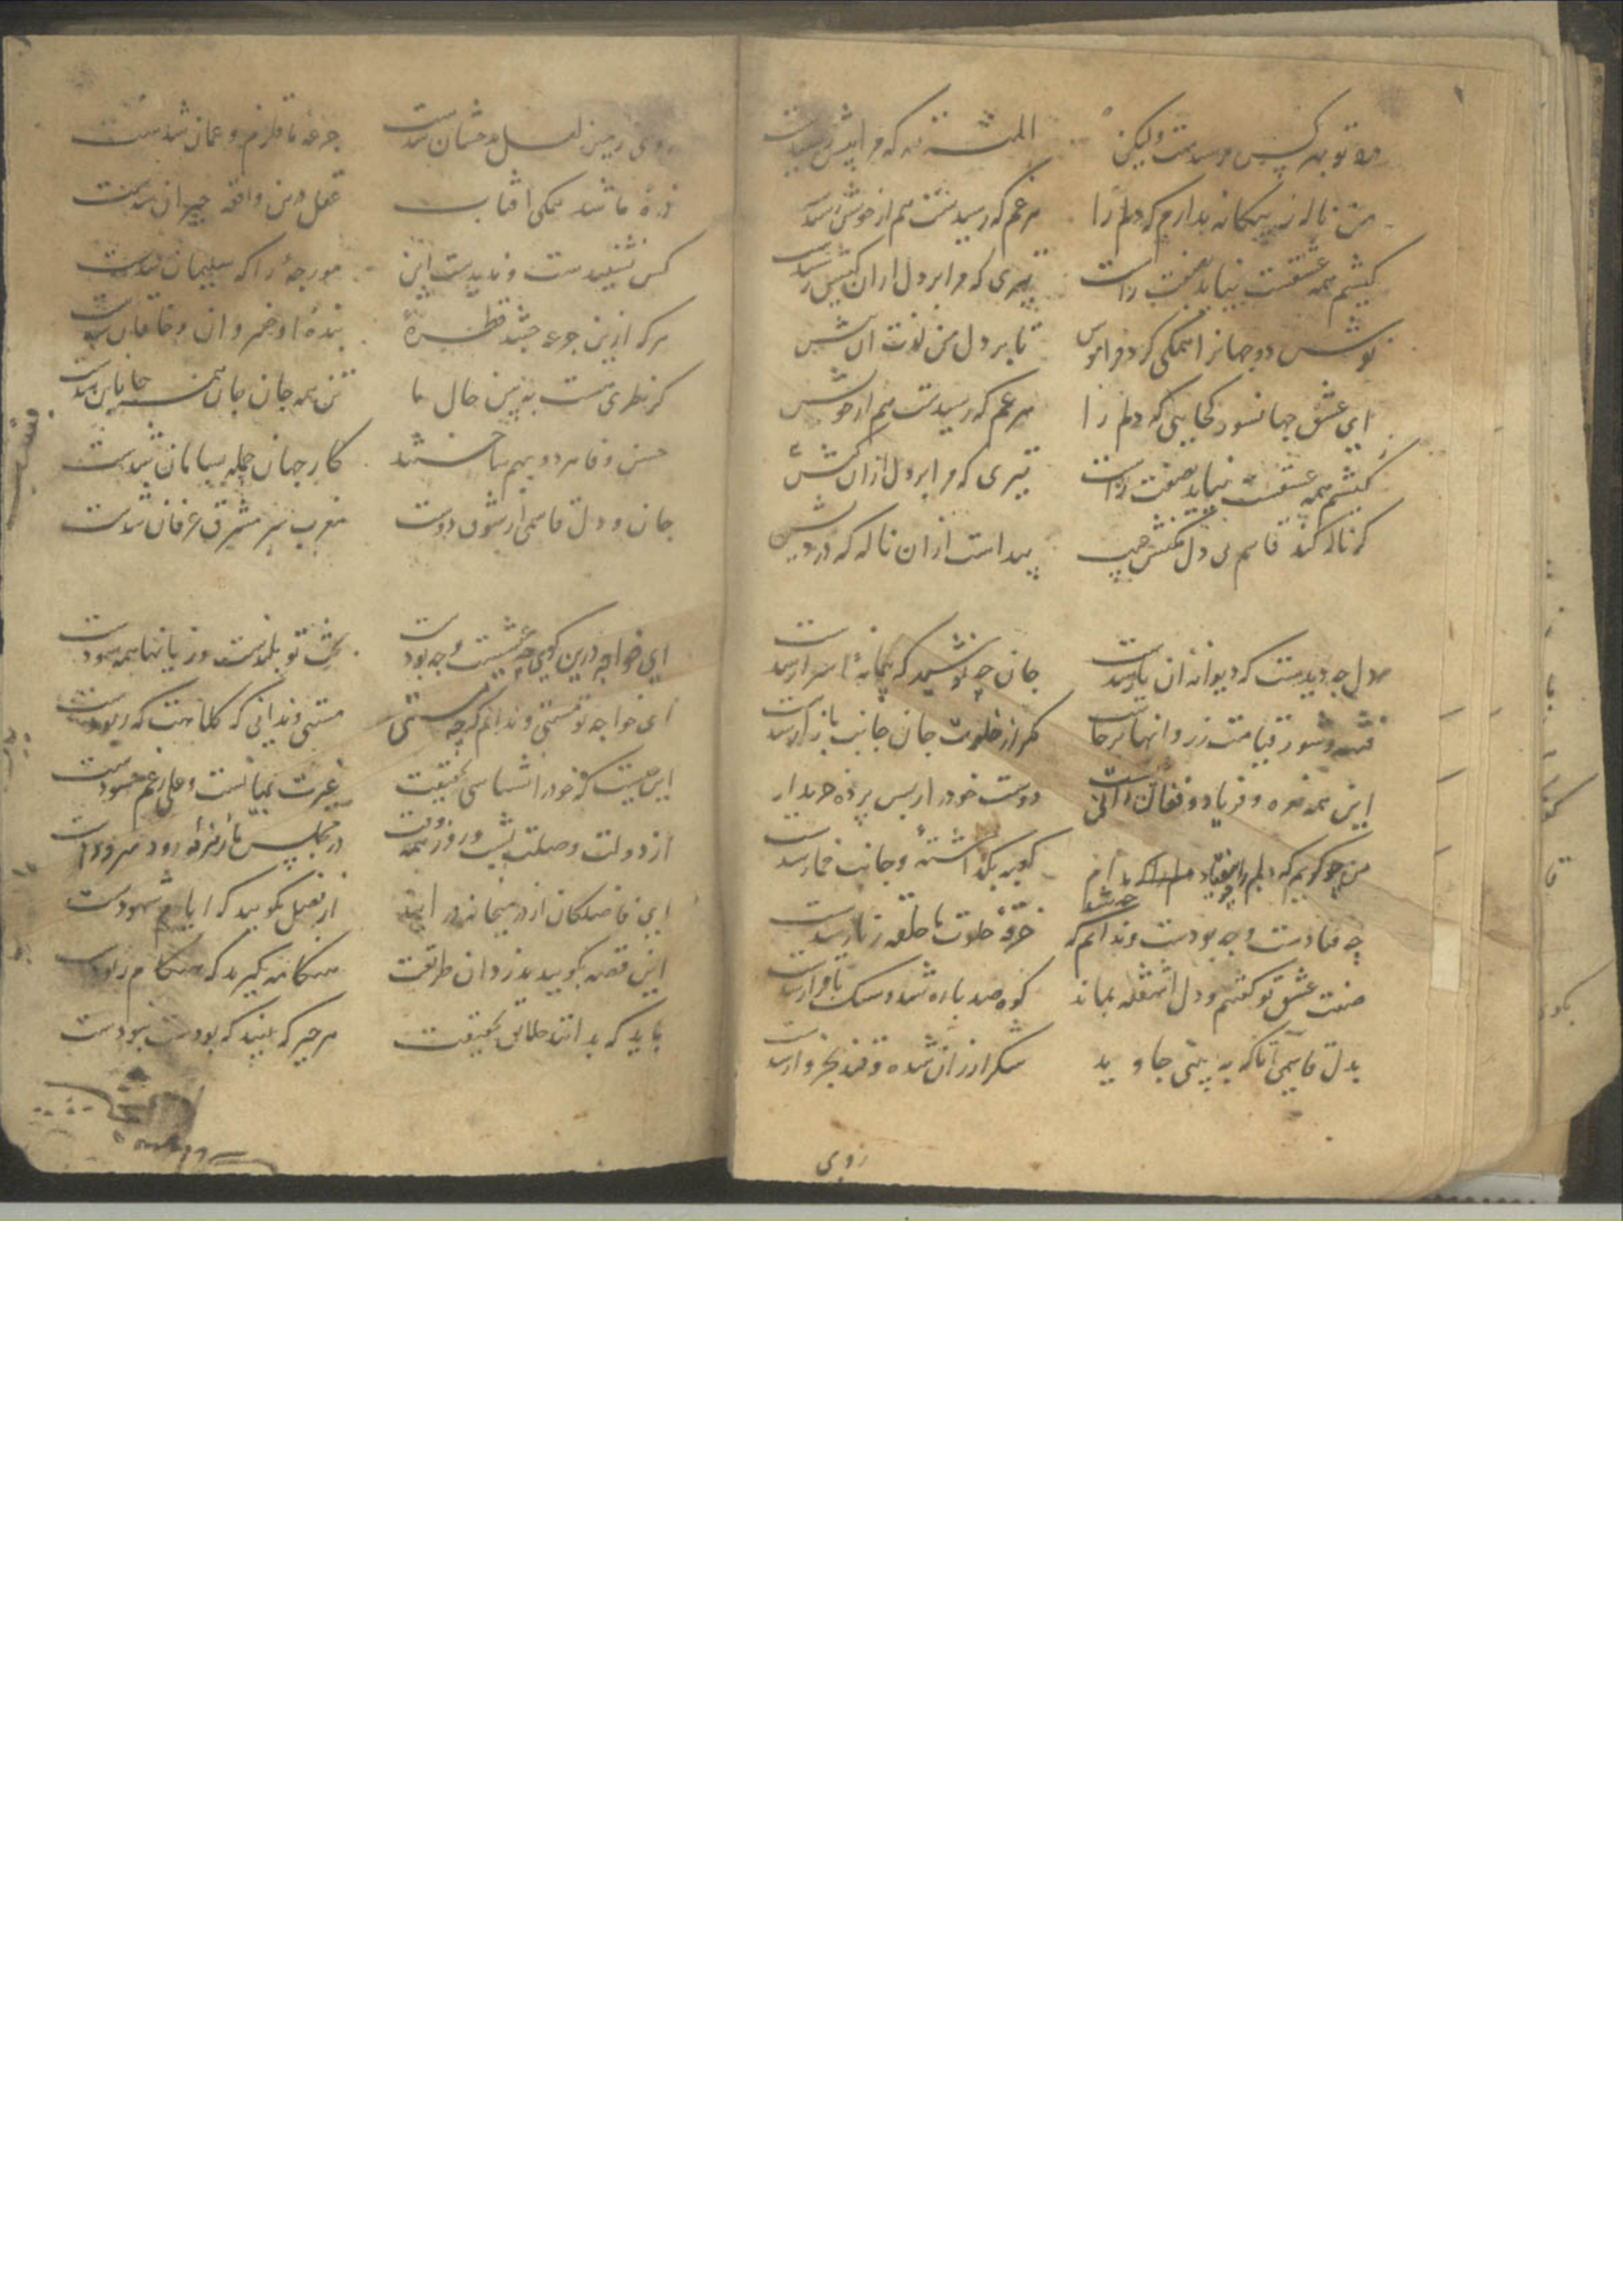 درد تو بهر کس نرسیدست ولیکن المنة لله که مرا بیش رسیدست
من ناله ز بیکانه ندارم که دلم را هر غم که رسیدست هم از خویش رسیدست
کیشم همه عشقست تیری که مرا بر دل ازان کیش رسیدست
نوشش دو جهانرا همکی کرد فراموش تا بر دل من لذت آن نیش
ای عشق جهانسوز کجایی که دلم را هر غم که رسیدست هم از خویش
کیشم همه عشقست تیری که مرا بر دل ازان کیش
کر ناله کند قاسم بی دل مکنش عیب پیداست ازان ناله که درویش
دل چه دیدست که دیوانه آن یار شدست جان چه نوشید که پیمانه اسرار شدست
فتنه و شور قیامت ز روانها برخاست مکر از خلوت جان جانب بازار شدست
این همه نعره و فریاد و فغان دانی دوست خود را ز پس پرده خریدار
من چو کویم که دلم را کعبه بکذاشته و جانب خمار شدست
چه فتادست و چه بودست و ندانم که چه شد خرقه خلوت ما حلقه زنار شدست
صفت عشق تو کفتیم و دل آشفته بماند کوه صد باره شد و سنک باقرار شدست
بدل قاسمی آنا که به بینی جاوید شکر ارزان شده و قند بخروار شدست
روی
روی زمین لعل بدخشان شدست جرعه ما قلزم و عمان شدست
ذره ما شد همکی افتاب عقل درین واقعه حیران شدست
کس نشنیدست و ندیدست این مورچه را که سلیمان شدست
هر که ازین جرعه چشد قطره بنده او خسرو و خاقان شدست
کر نظری هست به بین حال ما تن همه جان جان همه جانان شدست
حسن و وفا هر دو بهم ساختند کار جهان جمله بسامان شدست
جان و دل قاسمی از شوق دوست مغرب سر مشرق عرفان شدست
ای خواجه درین کوی چه عیشست و چه بود بخت تو بلندست و زیانها همه سودست
ای خواجه تو مستی و ندانم که چه مستی مستی و ندانی که کلاهت که ربودست
این نیست که خود را نشناسی بحقیقت غیرت بمیانست و علی رغم حسودست
از دولت وصلت شب و روز همه وقت در مجلس ما زمزمه رود و سرودست
این فاضلکان از در میخانه در آیید از فضل مکویید که ایام شهودست
این قصه بکویید بدزدان طریقت هنکامه بکیرید که هنکام ربودست
باید که بدانند خلایق بحقیقت هر چیز که بینید که بودست نبودست